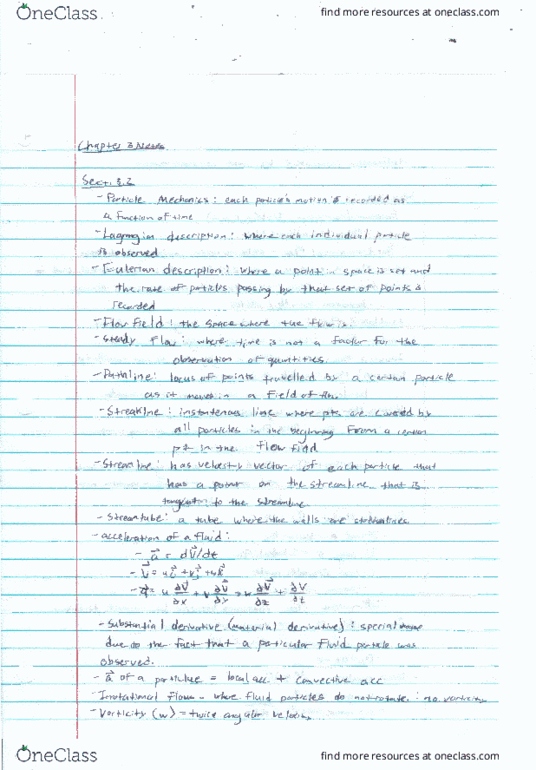 OneClass
find more resources at oneclass.com
Chapter 3 Notes
Sect. 3.2
- Particle Mechanics: each particle's motion is recorded as
a function of time
- Lagrangian description: where each individual particle
is observed
- Eulerian description: where a point in space is set and
the rate of particles passing by that set of points is
recorded
- Flow Field: the space where the flow is
- Steady Flow: where time is not a factor for the
observation of quantities
- Pathline: locus of points travelled by a certain particle
as it moves in a field of
- Streakline: line where pts are covered by
all particles in the beginning from a certain
pt in the flow
- Streamline: has velocity vector of each particle that
has a point on the streamline that is
to the streamline
- Streamtube: a tube where the walls are streamlines
- acceleration of a fluid:
- a⃗ = dV⃗/dt
- V⃗ = ui⃗ + vj⃗ + wk⃗
- a⃗ = u ∂V⃗/∂x + v ∂V⃗/∂y + w ∂V⃗/∂z + ∂V/∂t
- Substantial derivative (material derivative): special
due to the fact that a particular fluid particle was
observed.
- a⃗ of a particle = local acc + convective acc
- Irrotational Flow - where fluid particles do not rotate: no vorticity
- Vorticity (w) = twice angular velocity
OneClass
find more resources at oneclass.com